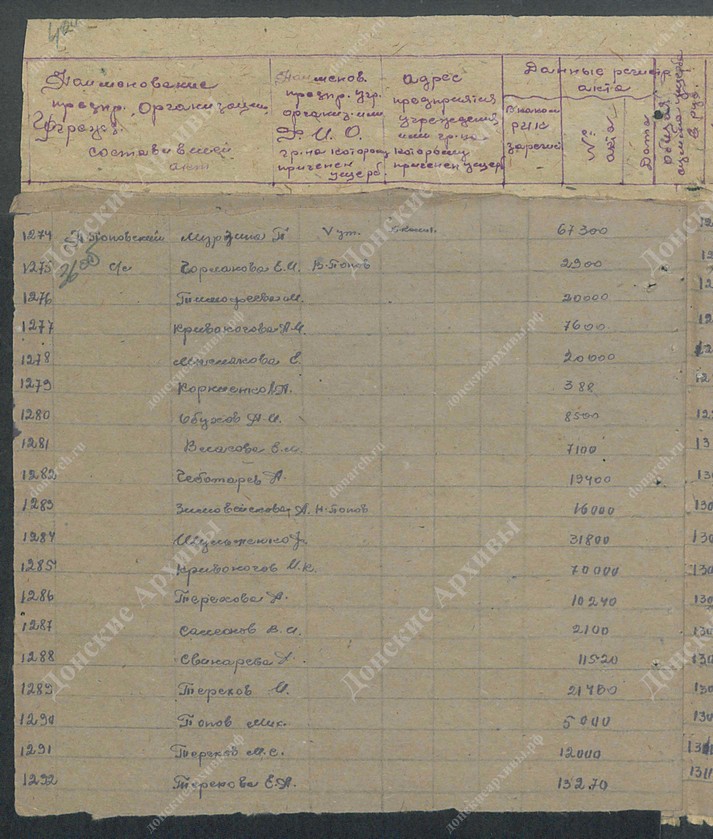 Наименование предпр. Организации Учрежд. составившей акт
Наименов. предпр. учр. организ. или Ф.И.О. гр-на которому причинен ущерб.
адрес предприятия учреждения или гр-на которому причинен ущерб
Данные регистр акта
РИК
№ акта
Дата
Общая сумма ущерба в руб.
1274 Поповский Мурзина П 67300
1275 с/с Горланова Е.И. В-Попов 2900
1276 Тимофеева М. 20000
1277 Кривоногова А.И. 7600
1278 Е. 20000
1279 388
1280 Обухов А.И. 8500
1281 Е.М. 7100
1282 Чеботарев А. 19400
1283 А. Н-Попов 16000
1284 31800
1285 Кривоногов И.К. 70000
1286 Терехова А. 10240
1287 В.И. 2100
1288 Свинарева А. 11520
1289 Терехов И. 21780
1290 Попов Мих. 5000
1291 Терехов М.С. 12000
1292 Терехова Е.А. 13270
Донские Архивы
donarch.ru
донскиеархивы.рф